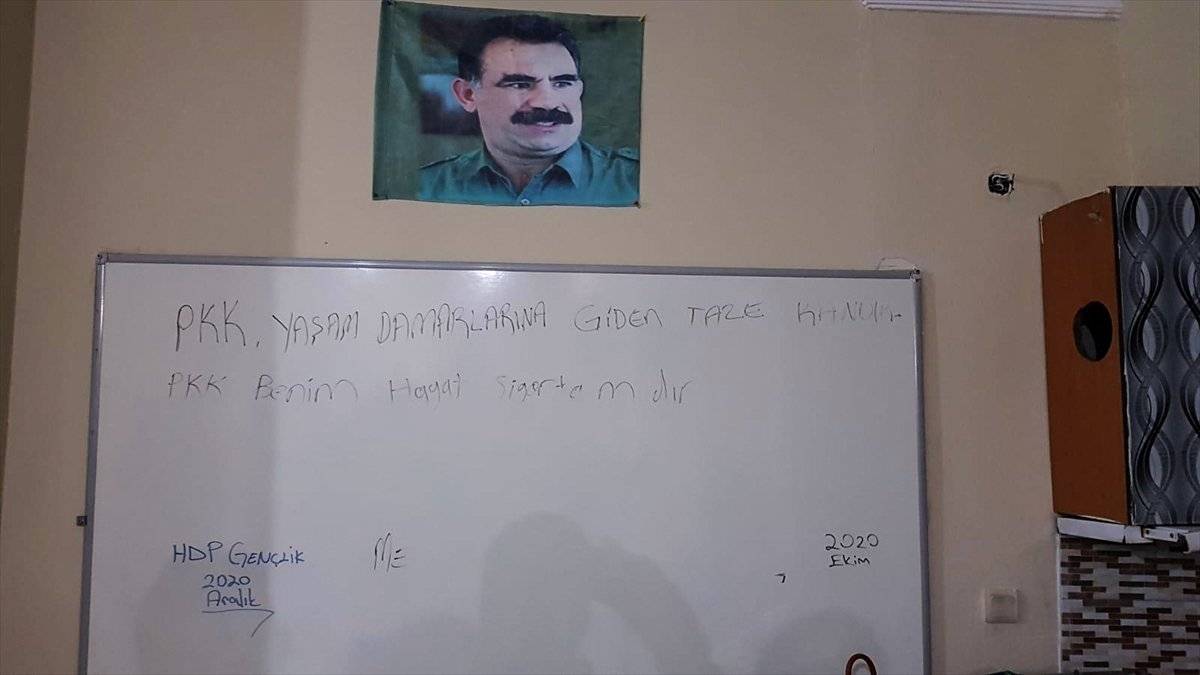 PKK, YAŞAM DAMARLARINA GİDEN TAZE
PKK Benim Hayat Sigortam dır
HDP GENÇLİK
2020
Aralık
ME
2020
Ekim